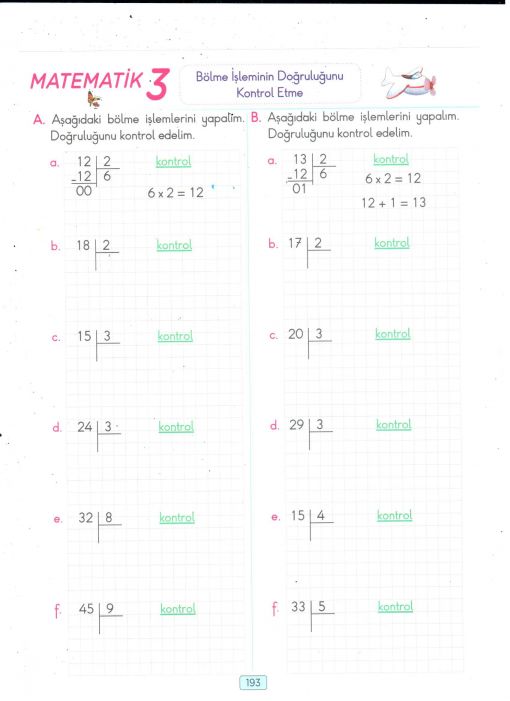 MATEMATİK 3
Bölme İşleminin Doğruluğunu
Kontrol Etme
A. Aşağıdaki bölme işlemlerini yapalım.
Doğruluğunu kontrol edelim.
a. 12 2 kontrol
-12 6
00 6 x 2 = 12
b. 18 2 kontrol
c. 15 3 kontrol
d. 24 3 kontrol
e. 32 8 kontrol
f. 45 9 kontrol
B. Aşağıdaki bölme işlemlerini yapalım.
Doğruluğunu kontrol edelim.
a. 13 2 kontrol
-12 6 6 x 2 = 12
01
12 + 1 = 13
b. 17 2 kontrol
c. 20 3 kontrol
d. 29 3 kontrol
e. 15 4 kontrol
f. 33 5 kontrol
193